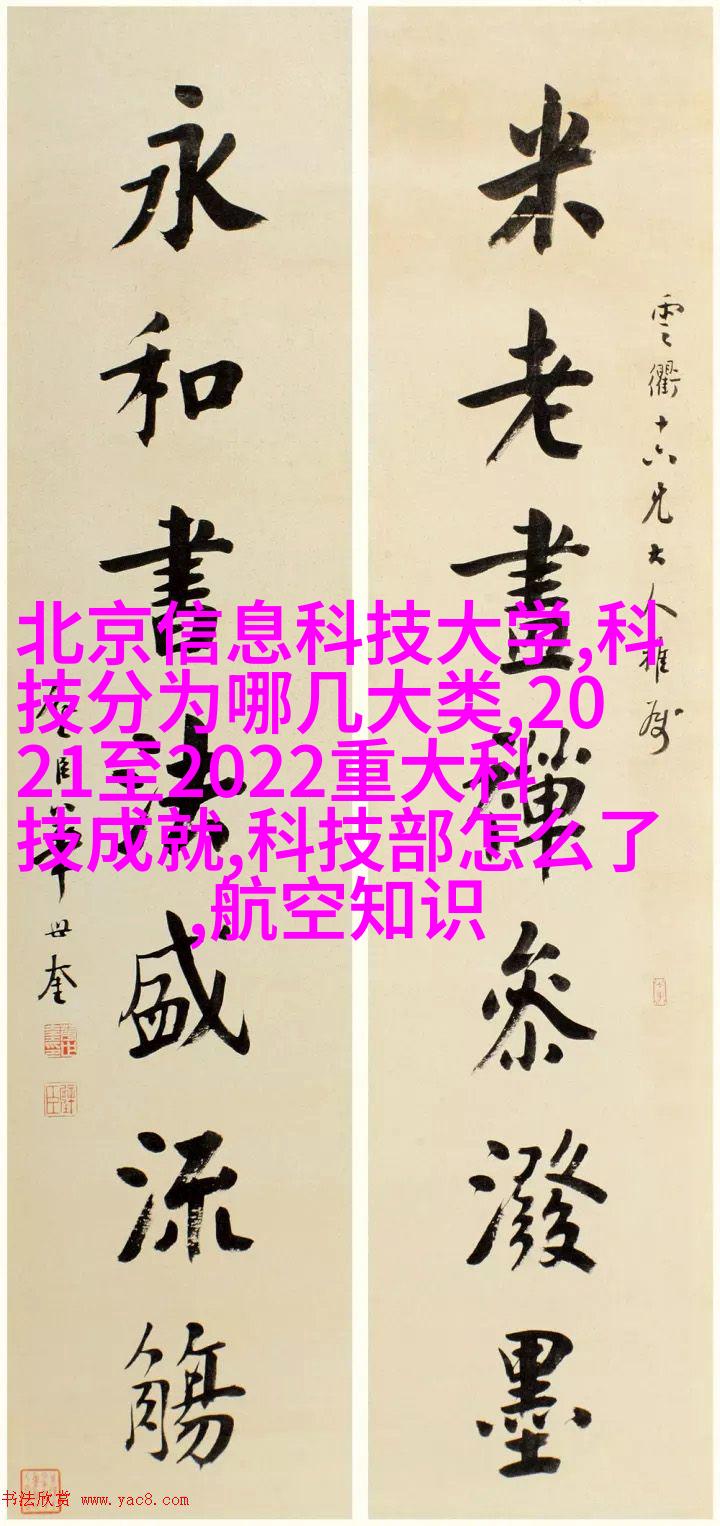 米老畫禪參潑墨
雲衢十六兄大人雅屬
永和書法盛流觴
弼臣華世奎
北京信息科技大学,科
技分为哪几大类,20
21至2022重大科
技成就,科技部怎么了
,航空知识
书法欣赏 www.yac8.com